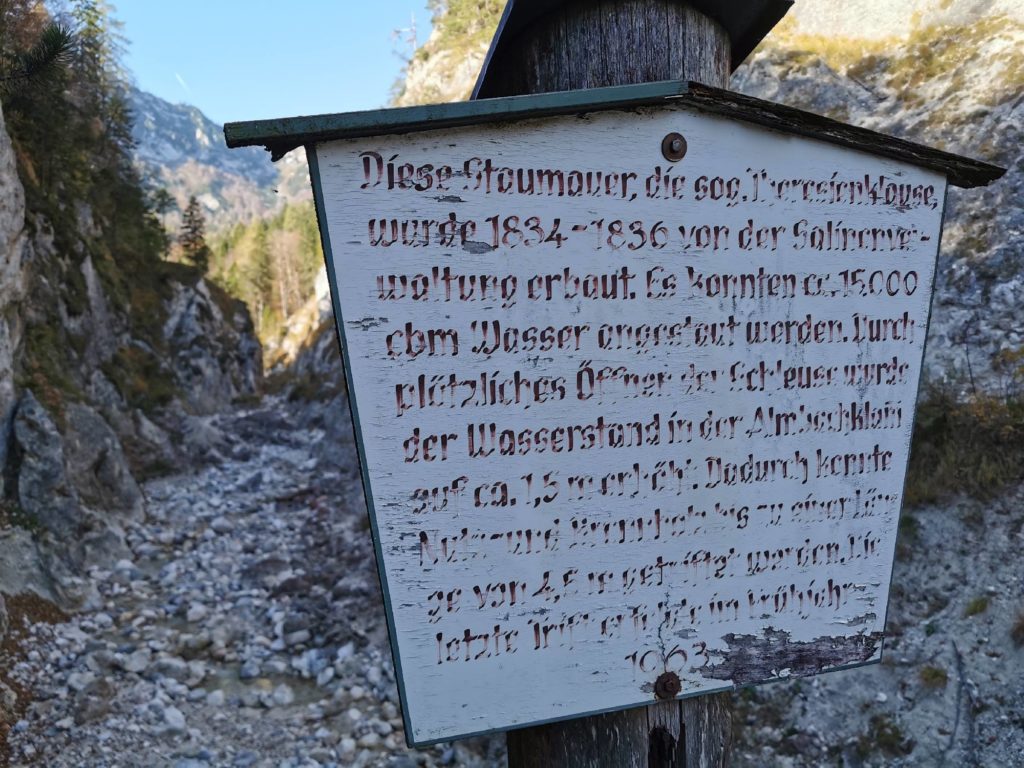 Diese Staumauer, die sog. Theresienklause,
wurde 1834-1836 von der Salinenver-
waltung erbaut. Es konnten ca. 15.000
cbm Wasser angestaut werden. Durch
plötzliches Öffnen der Schleuse wurde
der Wasserstand in der Almbachklam
auf ca. 1,5 m erhöht. Dadurch konnte
Nutz- und Brennholz bis zu einer Län-
ge von 4,5 m getriftet werden. Die
letzte Trift erfolgte im Frühjahr
1963